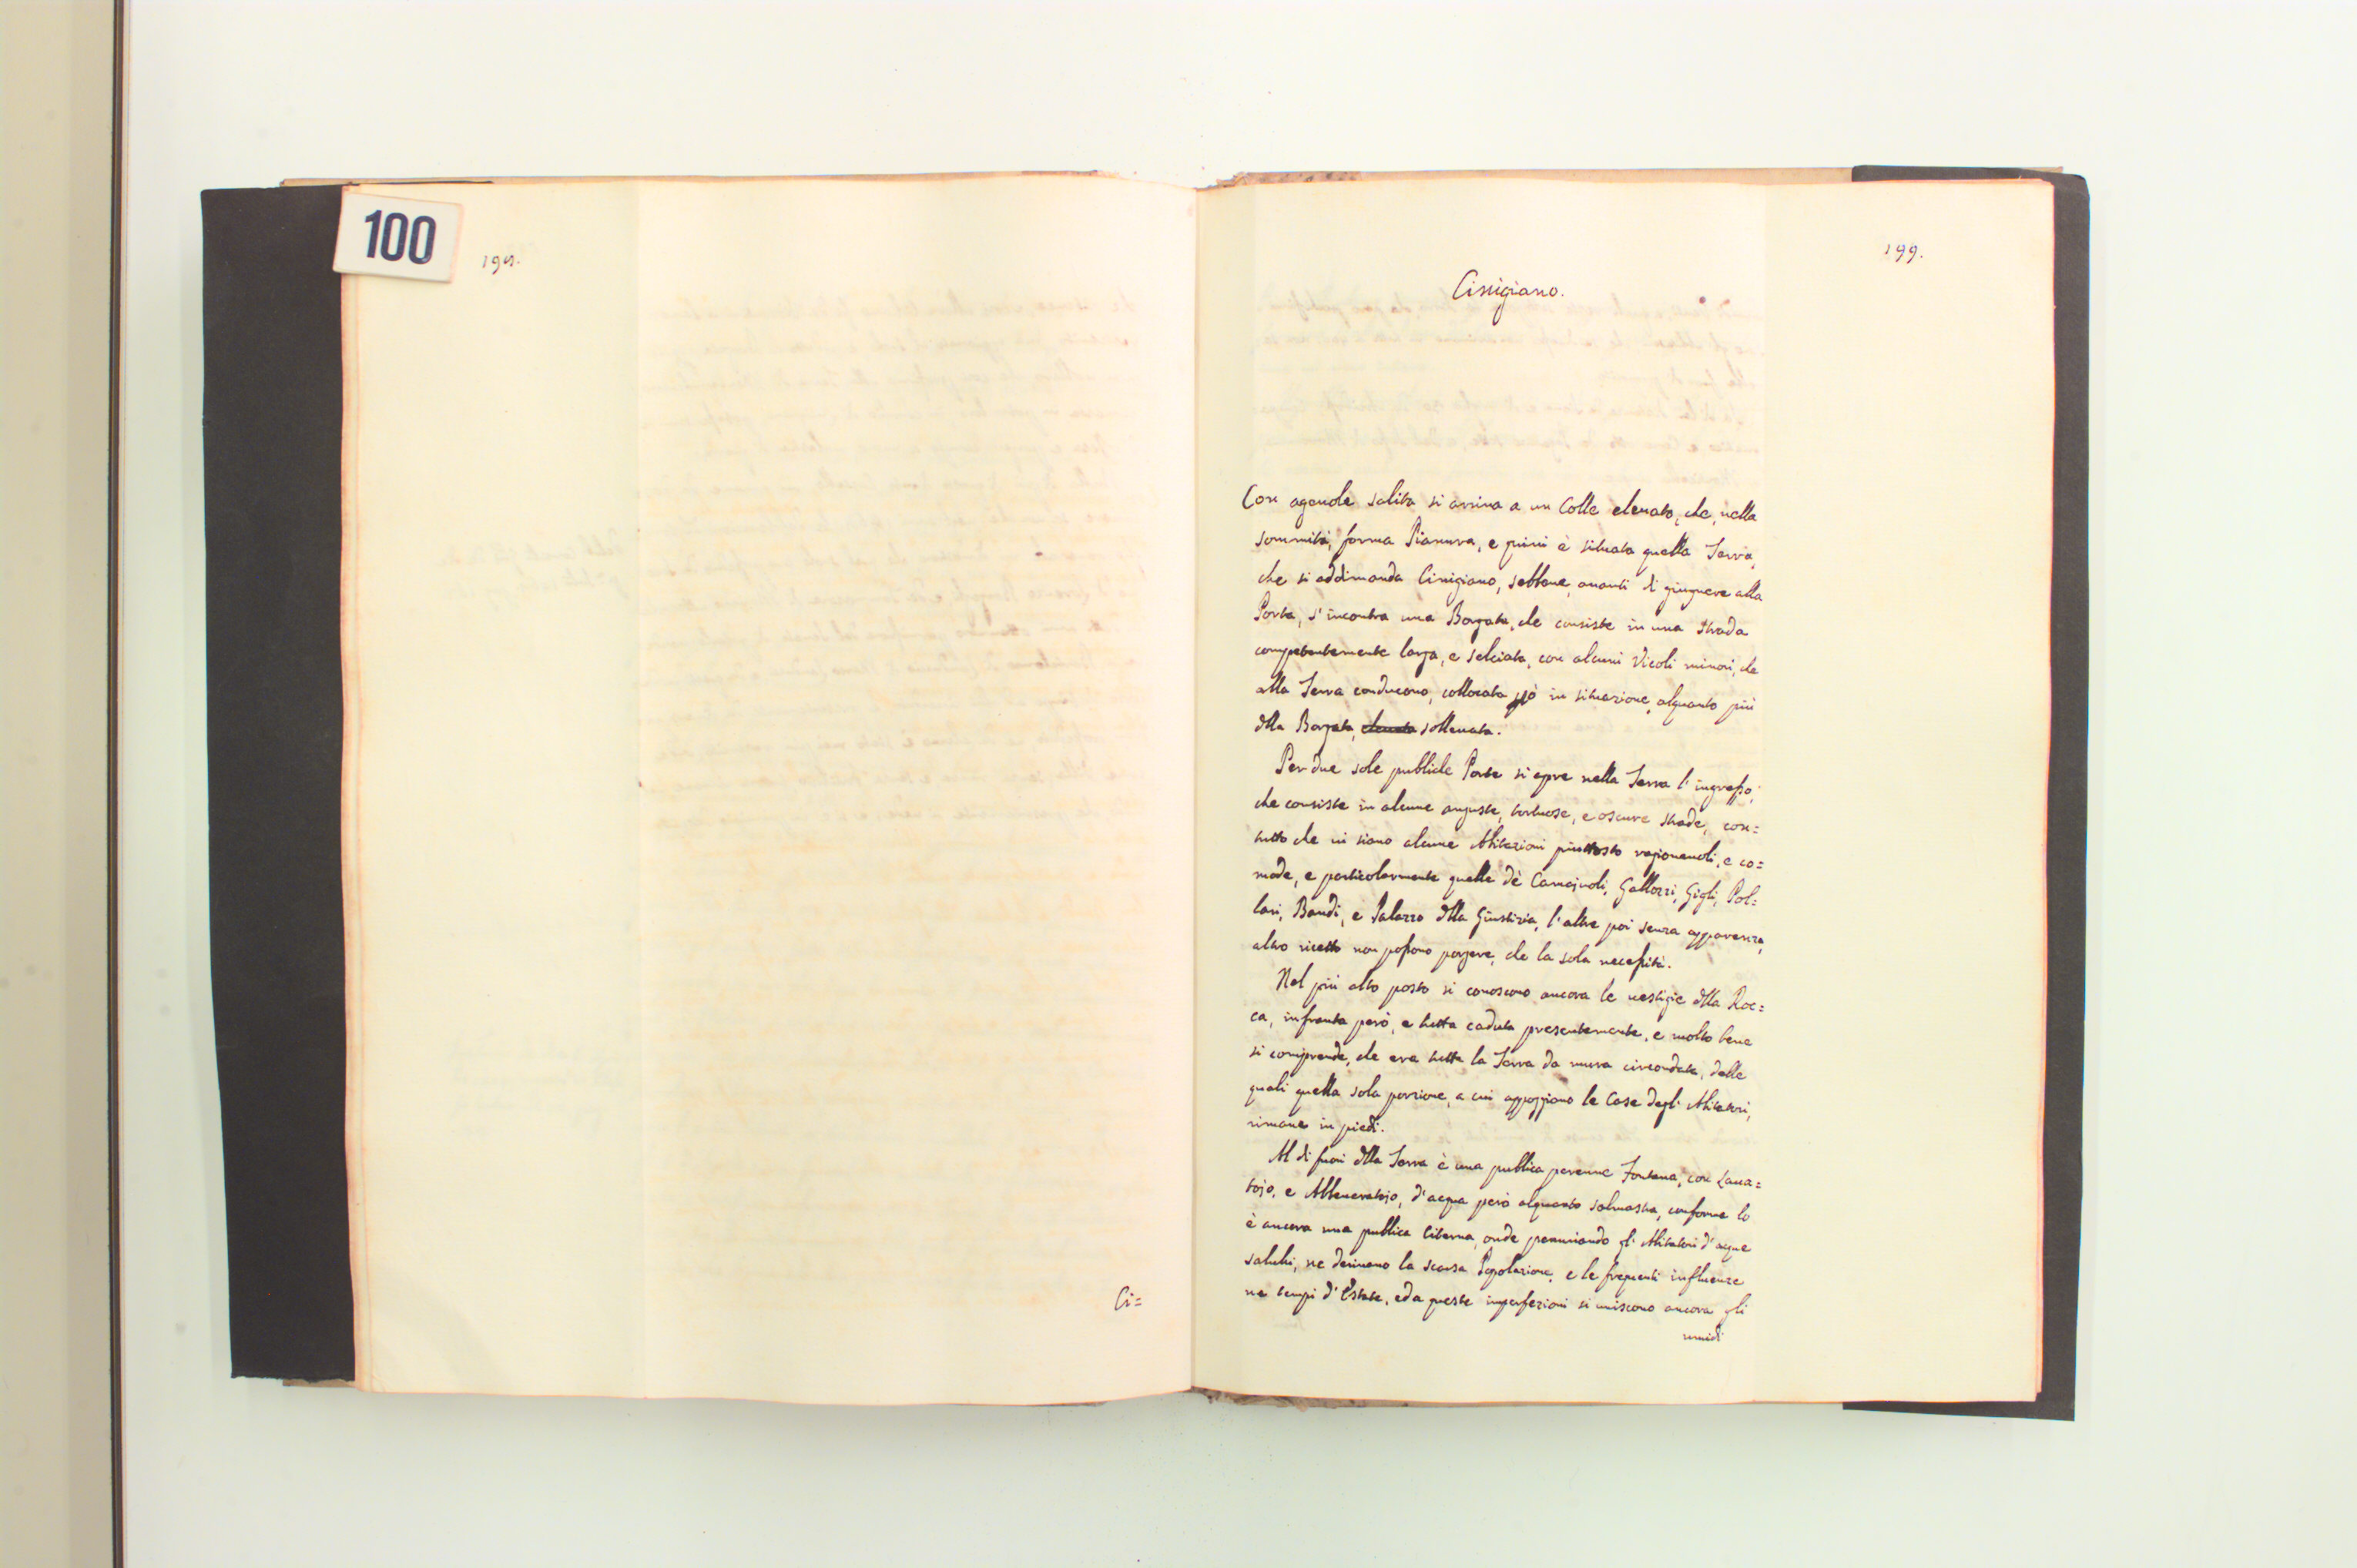 100
198.
Ci=
199.
Cinigiano.
Con agevole salita si arriva a un Colle elevato, che, nella
sommità, forma Pianura, e quivi è situata quella Terra,
che si addimanda Cinigiano, sebbene, avanti di giugnere alla
Porta, s'incontra una Borgata, che consiste in una strada
competentemente larga, e selciata, con alcuni Vicoli minori, che
alla Terra conducono, collocata però in situazione, alquanto più
della Borgata, elevata sollevata.
Per due sole publiche Porte si apre nella Terra l'ingresso,
che consiste in alcune anguste, tortuose, e oscure strade, con=
tutto che vi siano alcune Abitazioni piuttosto ragionevoli, e co=
mode, e particolarmente quelle de' Gallozzi, Gigli, Pol=
lari, Bandi, e Palazzo della Giustizia, l'altre poi senza apparenza,
altro ricetto non possono porgere, che la sola necessità.
Nel più alto posto si conoscono ancora le vestigie della Roc=
ca, infranta però, e tutta caduta presentemente, e molto bene
si comprende, che era tutta la Terra da mura circondata, delle
quali quella sola porzione, a cui appoggiano le Case degli Abitatori,
rimane in piedi.
Al di fuori della Terra è una publica perenne Fontana, con Lava=
tojo, e Abbeveratojo, d'acqua però alquanto salmastra, conforme lo
è ancora una publica Citerna, onde penuriando gl'Abitatori d'acque
salubri, ne derivano la scarsa Popolazione, e le frequenti influenze
ne tempi d'Estate, e da queste imperfezioni si uniscono ancora gli
umidi